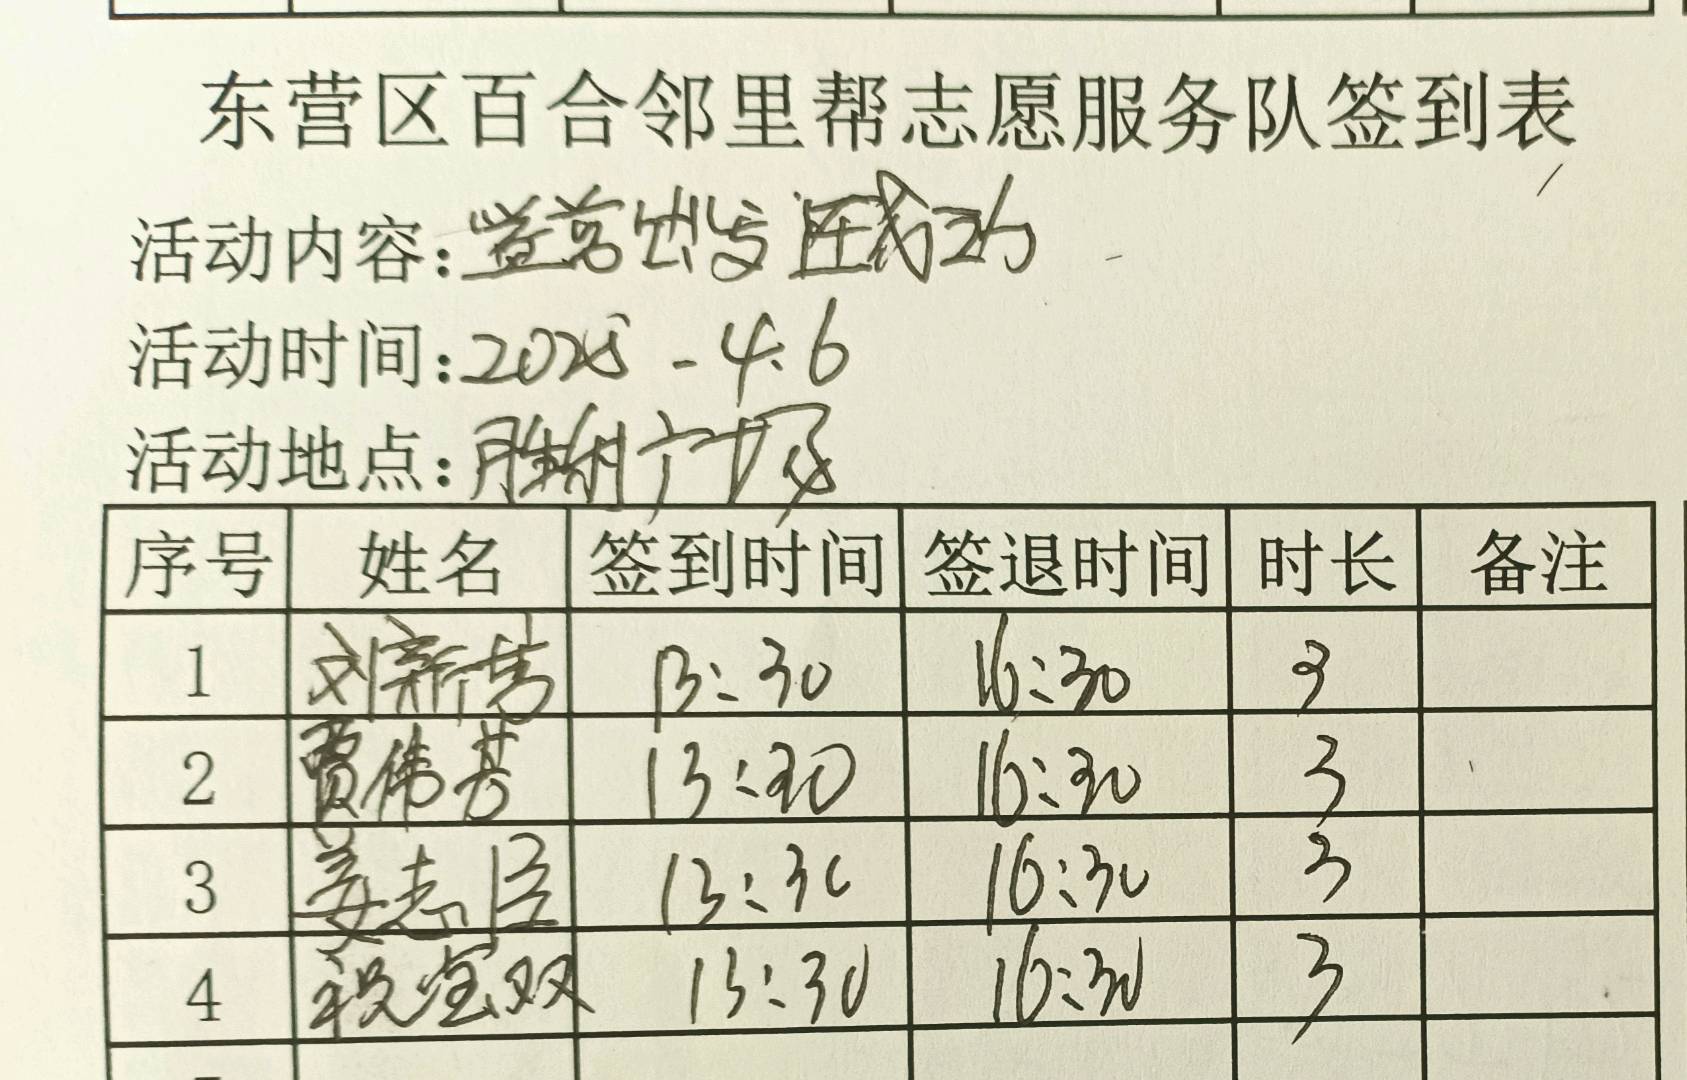 东营区百合邻里帮志愿服务队签到表
活动内容：益苗出发 在行动
活动时间：2025-4.6
活动地点：胜利广场
序号 姓名 签到时间 签退时间 时长 备注
1 刘新 13:30 16:30 3
2 贾伟 13:30 16:30 3
3 姜志 13:30 16:30 3
4 宝双 13:30 16:30 3